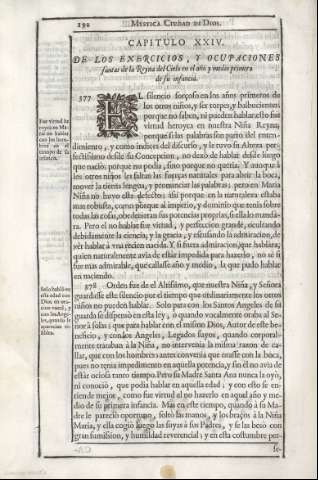 192
MYSTICA CIUDAD DE DIOS.
CAPITULO XXIV.
DE LOS EXERCICIOS, Y OCUPACIONES
santas de la Reyna del Cielo en el año y medio primero
de su infancia.
377
EL silencio forçoso en los años primeros de
los otros niños, y ser torpes, y balbucientes
porque no saben, ni pueden hablar: esto fue
virtud heroyca en nuestra Niña Reyna;
porque si las palabras son parto del enten-
dimiento, y como indices del discurso, y le tuvo su Alteza per-
fectissimo desde su Concepcion, no dexò de hablar desde luego
que naciò, porque no podia, sino porque no queria. Y aunque à
los otros niños les faltan las fuerças naturales para abrir la boca,
mover la tierna lengua, y pronunciar las palabras; pero en Maria
Niña no huvo este defecto; assi porque en la naturaleza estaba
mas robusta, como porque al imperio, y dominio que tenia sobre
todas las cosas, obedecieran sus potencias proprias, si ella lo manda-
ra. Pero el no hablar fue virtud, y perfeccion grande, ocultando
debidamente la ciencia, y la gracia, y escusando la admiracion, de
ver hablar à una recien nacida. Y si fuera admiracion, que hablara;
quien naturalmente avia de estar impedida para hazerlo, no sè si
fue mas admirable, que callasse año y medio, la que pudo hablar
en naciendo.
378 Orden fue de el Altissimo, que nuestra Niña, y Señora
guardasse este silencio por el tiempo que ordinariamente los otros
niños no pueden hablar. Solo para con los Santos Angeles de su
guarda se dispensò en esta ley, ò quando vocalmente oraba al Se-
ñor à solas: que para hablar con el mismo Dios, Autor de este be-
neficio, y con los Angeles, Legados suyos, quando corporal-
mente trataban à la Niña, no intervenia la misma razon de ca-
llar, que con los hombres: antes convenia que orasse con la boca,
pues no tenia impedimento en aquella potencia, y sin èl no avia de
estar ociosa tanto tiempo. Pero su Madre Santa Ana nunca la oyò,
ni conociò, que podia hablar en aquella edad; y con esto se en-
tiende mejor, como fue virtud el no hazerlo en aquel año y me-
dio de su primera infancia. Mas en este tiempo, quando à su Ma-
dre le pareciò oportuno, soltò las manos, y los braços à la Niña
Maria, y ella cogiò luego las suyas à sus Padres, y se las besò con
gran sumission, y humildad reverencial; y en esta costumbre per-
se-